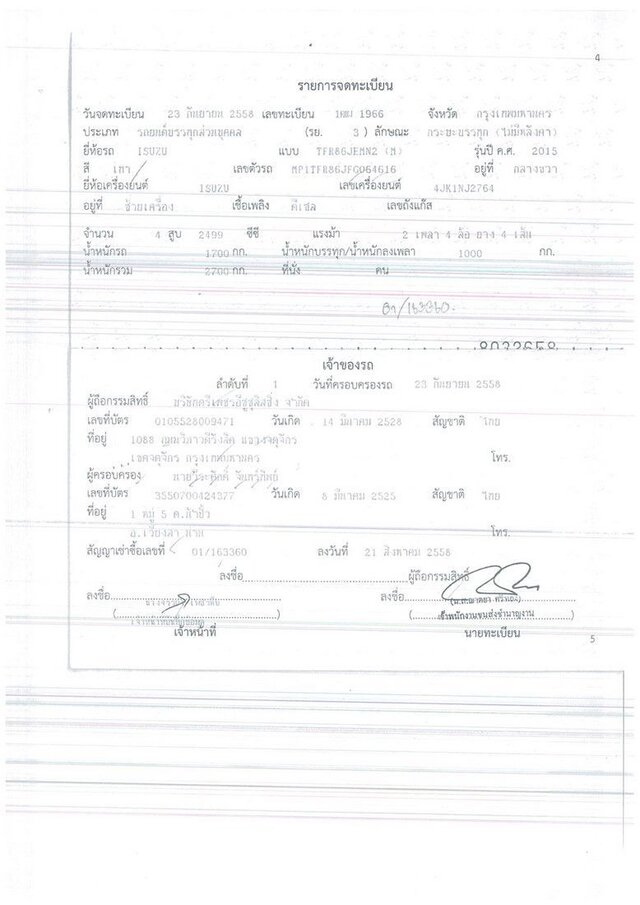 4
รายการจดทะเบียน
วันจดทะเบียน 23 กันยายน 2558 เลขทะเบียน 1966 จังหวัด กรุงเทพมหานคร
ประเภท รถยนต์บรรทุกส่วนบุคคล (รย. 3 ) ลักษณะ กระบะบรรทุก (ไม่มีหลังคา)
ยี่ห้อรถ ISUZU แบบ TFR86JEMN2 (M) รุ่นปี ค.ศ. 2015
สี เทา เลขตัวรถ MP1TFR86JFG064616 อยู่ที่ กลางขวา
ยี่ห้อเครื่องยนต์ ISUZU เลขเครื่องยนต์ 4JK1NJ2764
อยู่ที่ ซ้ายเครื่อง เชื้อเพลิง ดีเซล เลขถังแก๊ส
จำนวน 4 สูบ 2499 ซีซี แรงม้า 2 เพลา 4 ล้อ ยาง 4 เส้น
น้ำหนักรถ 1700 กก. น้ำหนักบรรทุก/น้ำหนักลงเพลา 1000 กก.
น้ำหนักรวม 2700 กก. ที่นั่ง คน
01/163360.
8033658
เจ้าของรถ
ลำดับที่ 1 วันที่ครอบครองรถ 23 กันยายน 2558
ผู้ถือกรรมสิทธิ์ บริษัทตรีเพชรอีซูซุลิสซิ่ง จำกัด
เลขที่บัตร 0105528009471 วันเกิด 14 มีนาคม 2528 สัญชาติ ไทย
ที่อยู่ 1088 ถนนวิภาวดีรังสิต แขวงจตุจักร
เขตจตุจักร กรุงเทพมหานคร โทร.
ผู้ครอบครอง
เลขที่บัตร 3550700424377 วันเกิด 8 มีนาคม 2525 สัญชาติ ไทย
ที่อยู่ 1 หมู่ 5
อ.เวียงสา น่าน โทร.
สัญญาเช่าซื้อเลขที่ 01/163360 ลงวันที่ 21 สิงหาคม 2558
ลงชื่อ ผู้ถือกรรมสิทธิ์
ลงชื่อ ลงชื่อ
เจ้าพนักงานขนส่งชำนาญงาน
เจ้าหน้าที่ นายทะเบียน
5